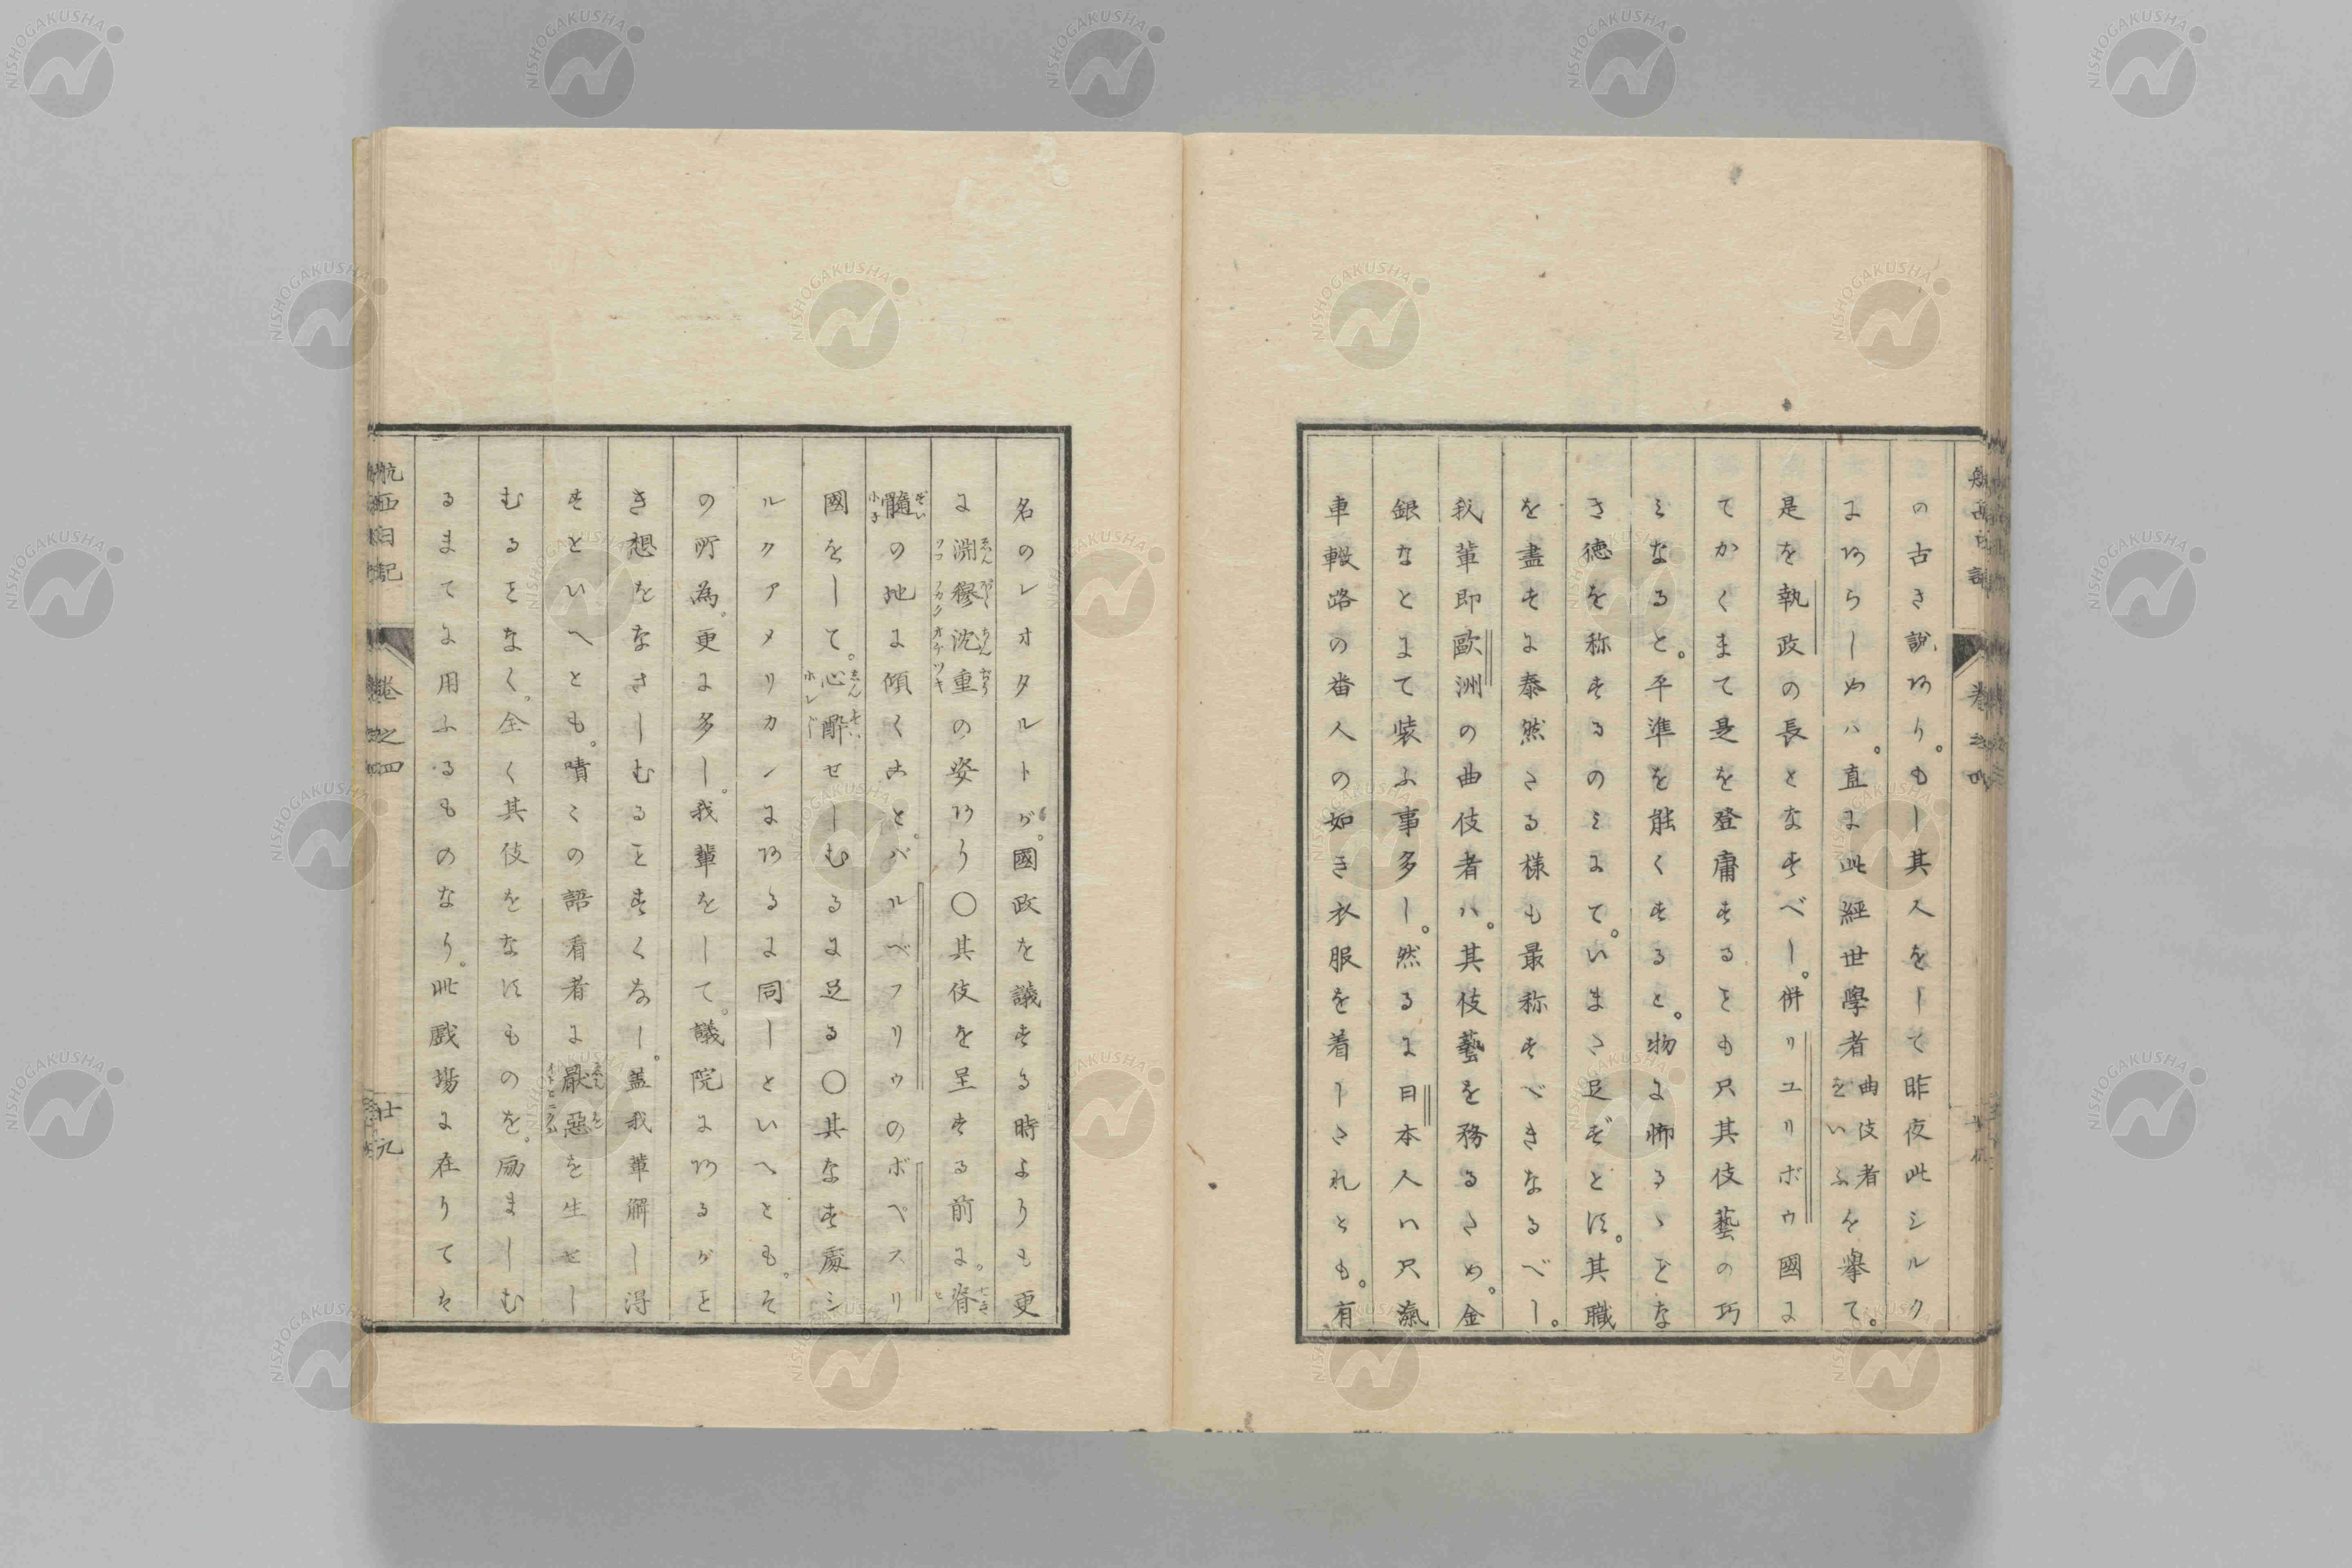 の古き説あり。もし其人をして昨夜此シルク
にあらしめハ。直に此経世學者曲伎者をいふを擧て。
是を執政の長となすべし。併リユリボウ國に
てかくまて是を登庸することも只其伎藝の巧
みなると。平準を能くすると。物に怖るゝことな
き徳を称するのみにて。いまさ足ずとは。其職
を盡すに泰然たる様も最称すべきなるべし。
我輩即歐洲の曲伎者ハ。其伎藝を務るため。金
銀なとまて装ふ事多し。然るに日本人ハ只瀛
車轍路の番人の如き衣服を着しされとも。有
名のレオタルトが。國政を議する時よりも更
に淵穆沈重の姿あり〇其伎を呈する前に。脊
髄の地に傾くこと。バルベフリウのボペスリ
國をして。心酔せしむるに足る〇其なす處シ
ルクアメリカンにあるに同しといへとも。そ
の所為。更に多し。我輩をして。議院にあるがこと
き想をなさしむることすくなし。蓋我輩解し得
すといへとも。嘖くの語看者に厭惡を生せし
むることなく。全く其伎をなすものを。励ましむ
るまてに用ふるものなり。此戯場に在りてハ
航西日記
卷之四
廿九